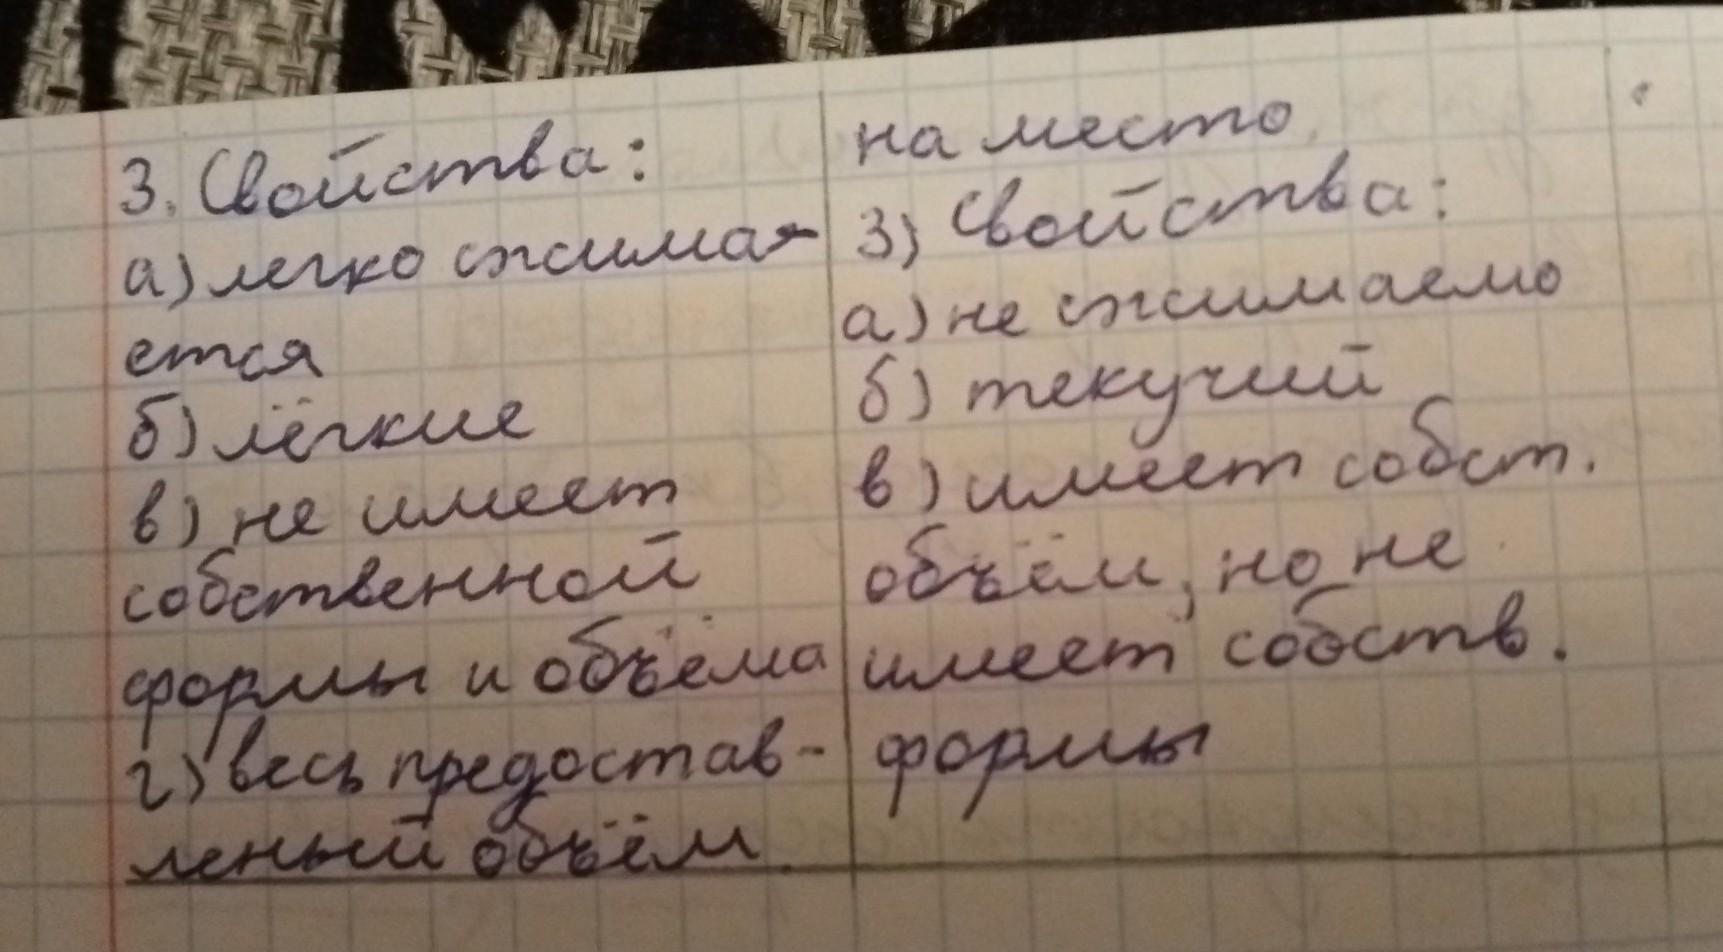 3. Свойства:
а) легко сжима-
ется
б) лёгкие
в) не имеет
собственной
формы и объёма
г) весь предостав-
леный объём.
на место
3) Свойства:
а) не сжимаемо
б) текучий
в) имеет собст.
объём, но не
имеет собств.
формы